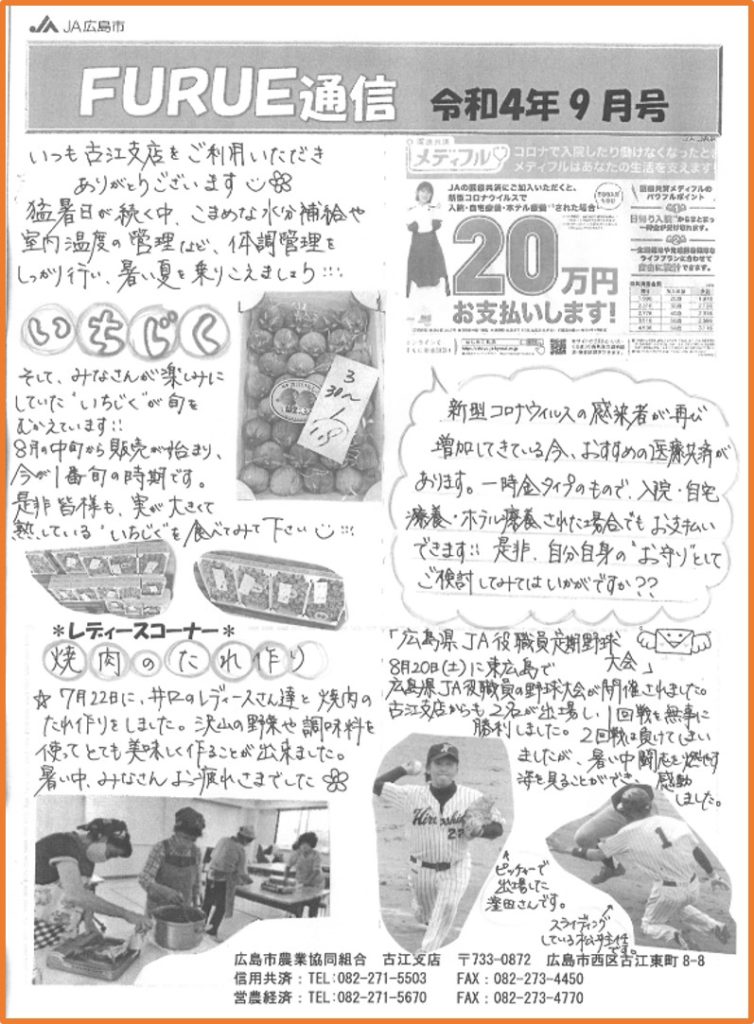 JA広島市
FURUE通信 令和4年9月号
いつも古江支店をご利用いただき
ありがとうございます
猛暑日が続く中、こまめな水分補給や
室内温度の管理など、体調管理を
しっかり行い、暑い夏を乗りこえましょう!!!
いちじく
そして、みなさんが楽しみに
していた"いちじく"が旬を
むかえています!!
8月の中旬から販売が始まり、
今が1番旬の時期です。
是非皆様も、実が大きくて
熟している"いちじく"を食べてみて下さい
メディフル
コロナで入院したり働けなくなったとき
メディフルはあなたの生活を支えます
JAの医療共済にご加入いただくと、
新型コロナウイルスで
入院・自宅療養・ホテル療養された場合
20万円
お支払いします!
医療共済メディフルの
パワフルポイント
日帰り入院からまとまった
一時金が受け取れます。
ライフプランに合わせて
自由に設計できます。
新型コロナウイルスの感染者が再び
増加してきている今、おすすめの医療共済が
あります。一時金タイプのもので、入院・自宅
療養・ホテル療養された場合でもお支払い
できます!! 是非、自分自身の"お守り"として
ご検討してみてはいかがですか??
*レディースコーナー*
焼肉のたれ作り
☆7月22日に、井口のレディースさん達と焼肉の
たれ作りをしました。沢山の野菜や調味料を
使ってとても美味しく作ることが出来ました。
暑い中、みなさんお疲れさまでした
「広島県JA役職員定期野球
大会」
8月20日(土)に東広島で
広島県JA役職員の野球大会が開催されました。
古江支店からも2名が出場し、1回戦を無事に
勝利しました。2回戦は負けてしまい
ましたが、暑い中闘志を燃やす
姿を見ることができ、感動
しました。
Hiroshima
22
1
ピッチャーで
出場した
窪田さんです。
スライディング
している松井主任
です。
広島市農業協同組合 古江支店 〒733-0872 広島市西区古江東町8-8
信用共済:TEL:082-271-5503 FAX:082-273-4450
営農経済:TEL:082-271-5670 FAX:082-273-4770